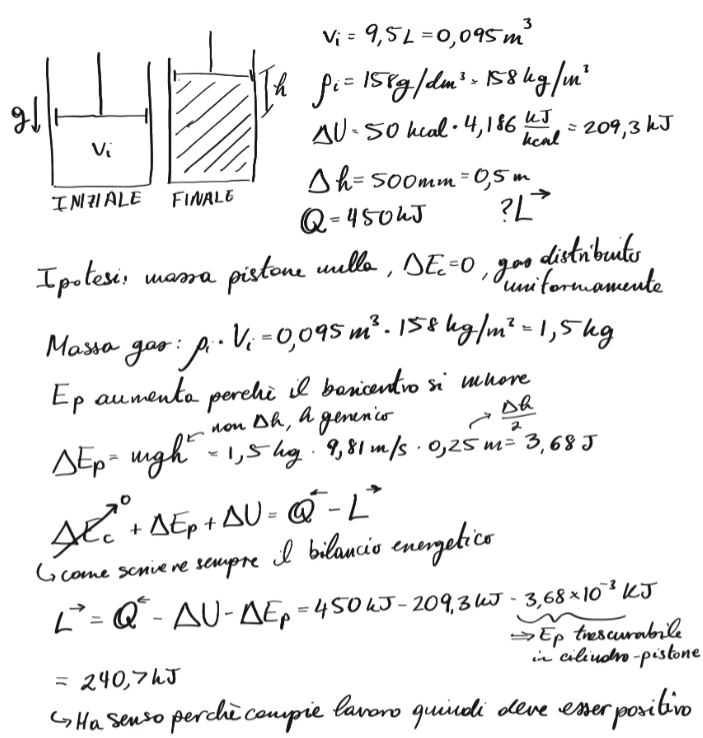 Vi = 9,5L = 0,095 m³
ρi = 158g/dm³ = 158 kg/m³
ΔU = 50 kcal · 4,186 kJ/kcal = 209,3 kJ
Δh = 500mm = 0,5 m
Q = 450kJ ?L→
g↓
Vi
h
INIZIALE FINALE
Ipotesi: massa pistone nulla, ΔEc=0, gas distribuito uniformamente
Massa gas: ρi · Vi = 0,095 m³ · 158 kg/m³ = 1,5 kg
Ep aumenta perchè il baricentro si muove
non Δh, h generico
Δh/2
ΔEp = mgh = 1,5 kg · 9,81 m/s · 0,25 m = 3,68 J
ΔEc→0 + ΔEp + ΔU = Q← - L→
↳ come scrivere sempre il bilancio energetico
L→ = Q← - ΔU - ΔEp = 450 kJ - 209,3 kJ - 3,68 × 10⁻³ kJ
⇒ Ep trascurabile
in cilindro-pistone
= 240,7 kJ
↳ Ha senso perchè compie lavoro quindi deve esser positivo